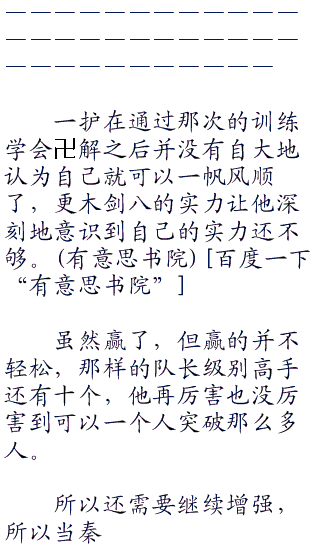 ————————————
————————————
———————————
一护在通过那次的训练
学会卍解之后并没有自大地
认为自己就可以一帆风顺
了，更木剑八的实力让他深
刻地意识到自己的实力还不
够。(有意思书院)[百度一下
“有意思书院”]
虽然赢了，但赢的并不
轻松，那样的队长级别高手
还有十个，他再厉害也没厉
害到可以一个人突破那么多
人。
所以还需要继续增强，
所以当秦